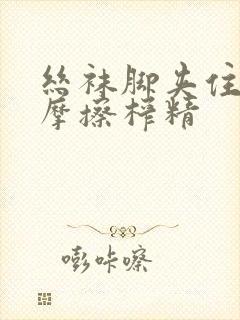 丝袜脚夹住
摩擦榨精
嘭咔嚓